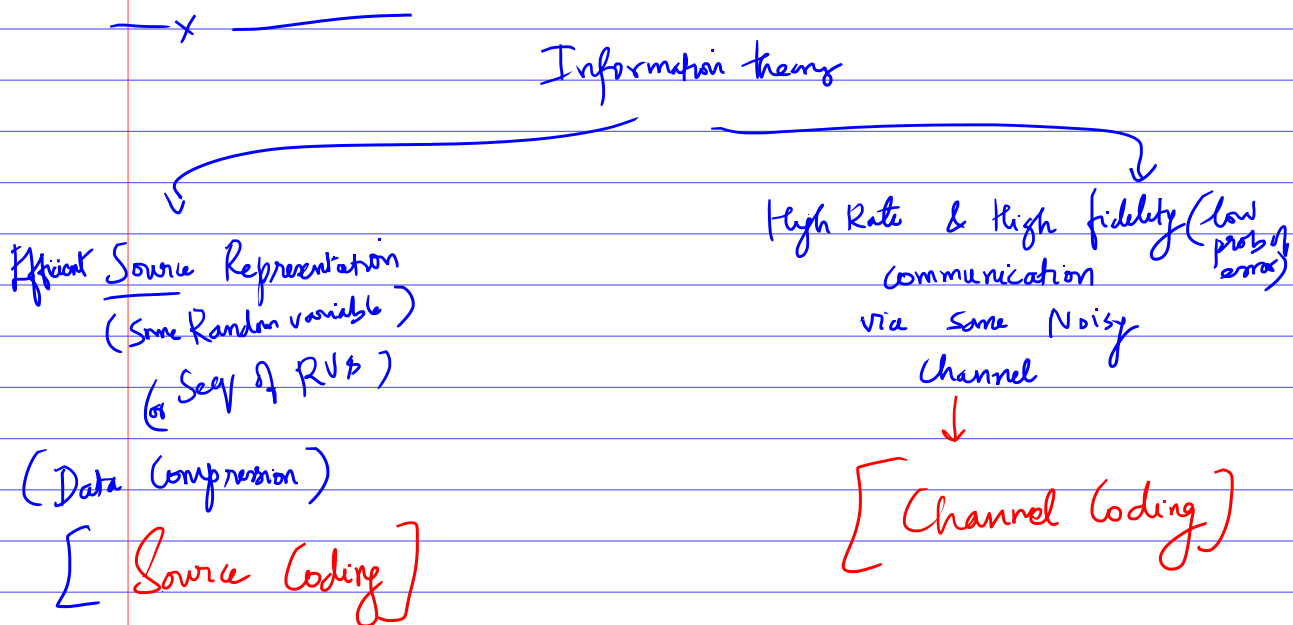 Information theory
Efficient Source Representation
(Some Random variable)
(or Seq of RVs)
(Data Compression)
[Source Coding]
High Rate & High fidelity (low prob of error)
communication
via some Noisy
Channel
[Channel Coding]